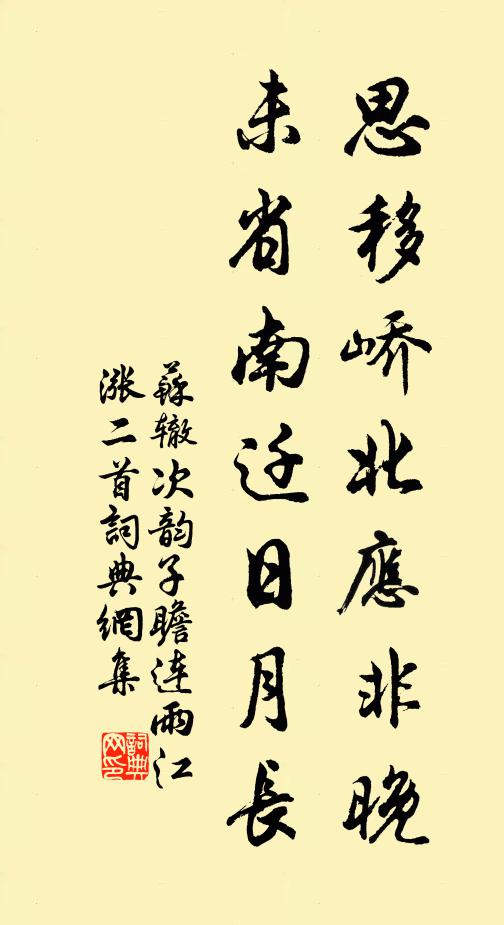 思移峤北應非晚
未省南迁日月長
蘇辙次韵子瞻连雨江
漲二首詞典網集
詞典
网印